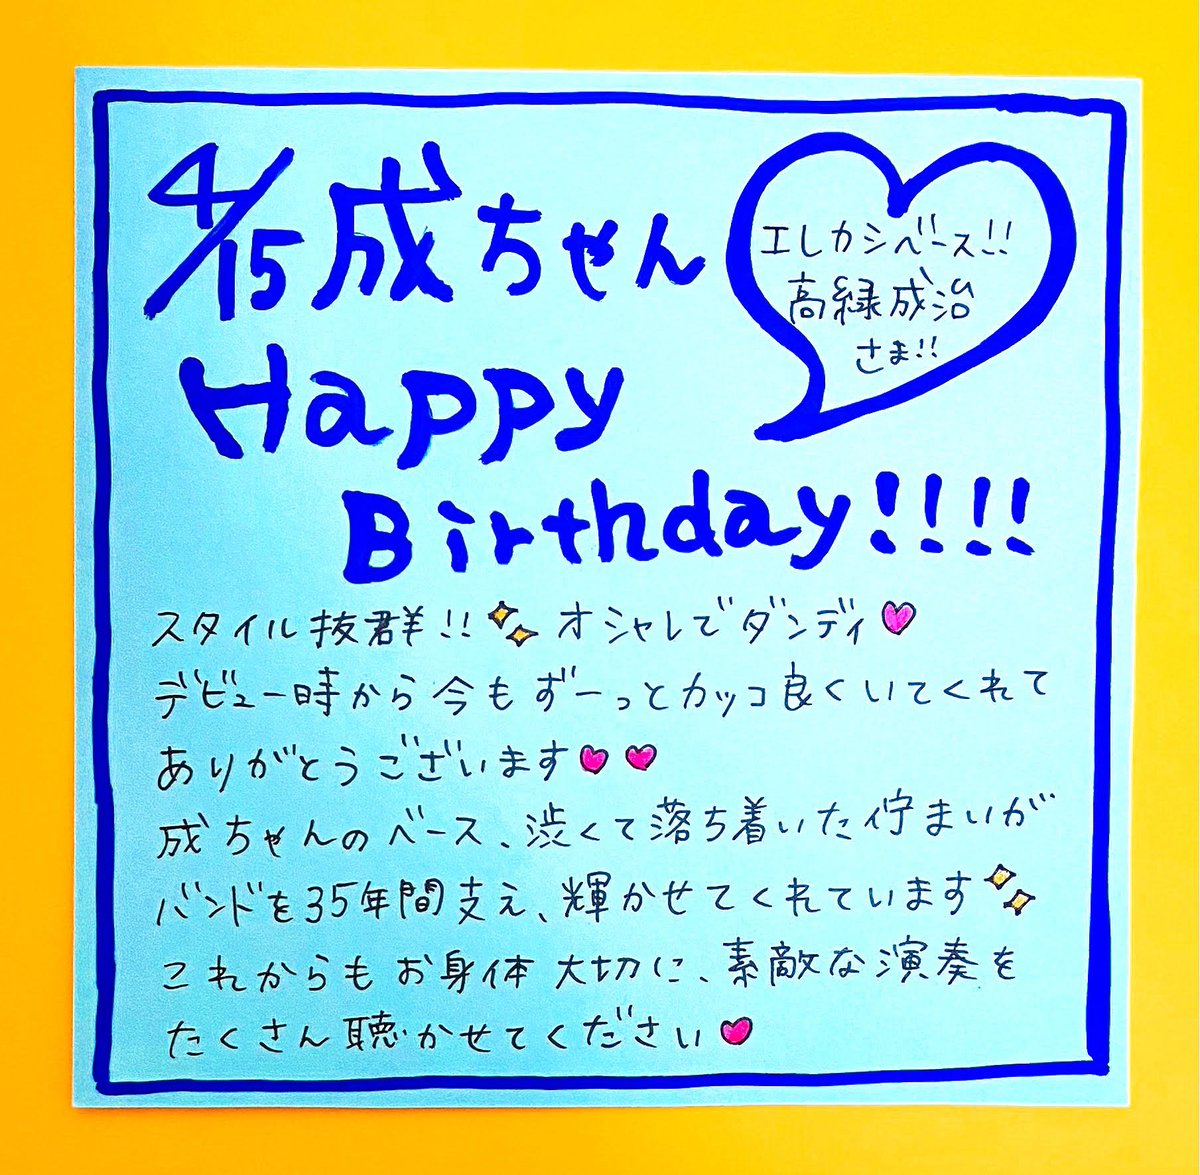 4/15成ちゃん
エレカシベース!!
高緑成治
さま!!
Happy
Birthday!!!!
スタイル抜群!! オシャレでダンディ
デビュー時から今もずーっとカッコ良くいてくれて
ありがとうございます
成ちゃんのベース、渋くて落ち着いた佇まいが
バンドを35年間支え、輝かせてくれています
これからもお身体大切に、素敵な演奏を
たくさん聴かせてください